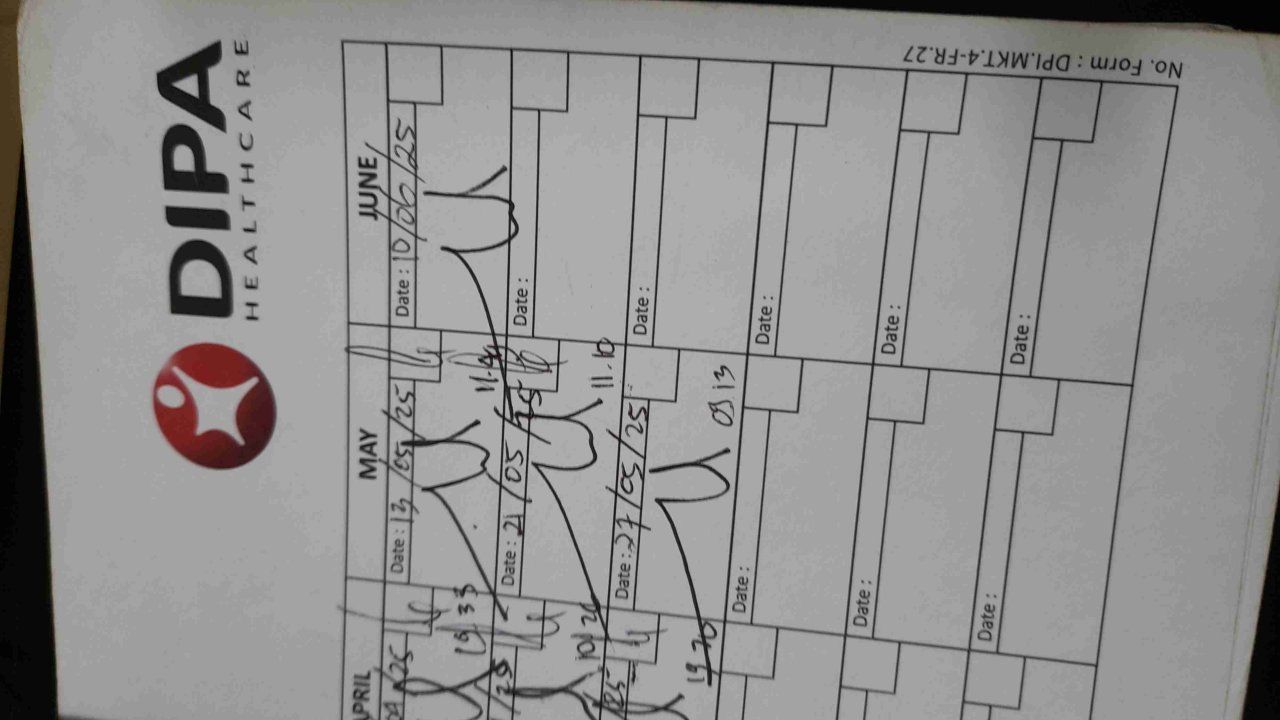 DIPA
HEALTHCARE
APRIL
MAY
JUNE
/25
Date : 13/05/25
Date : 10/06/25
19 33
Date : 21/05/25
11.10
Date :
Date : 27/05/25
Date :
09 13
Date :
Date :
Date :
Date :
Date :
Date :
No. Form : DPI.MKT.4-FR.27